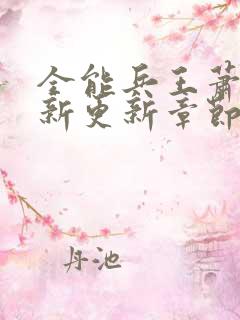 全能兵王萧
新更新章节
丹池